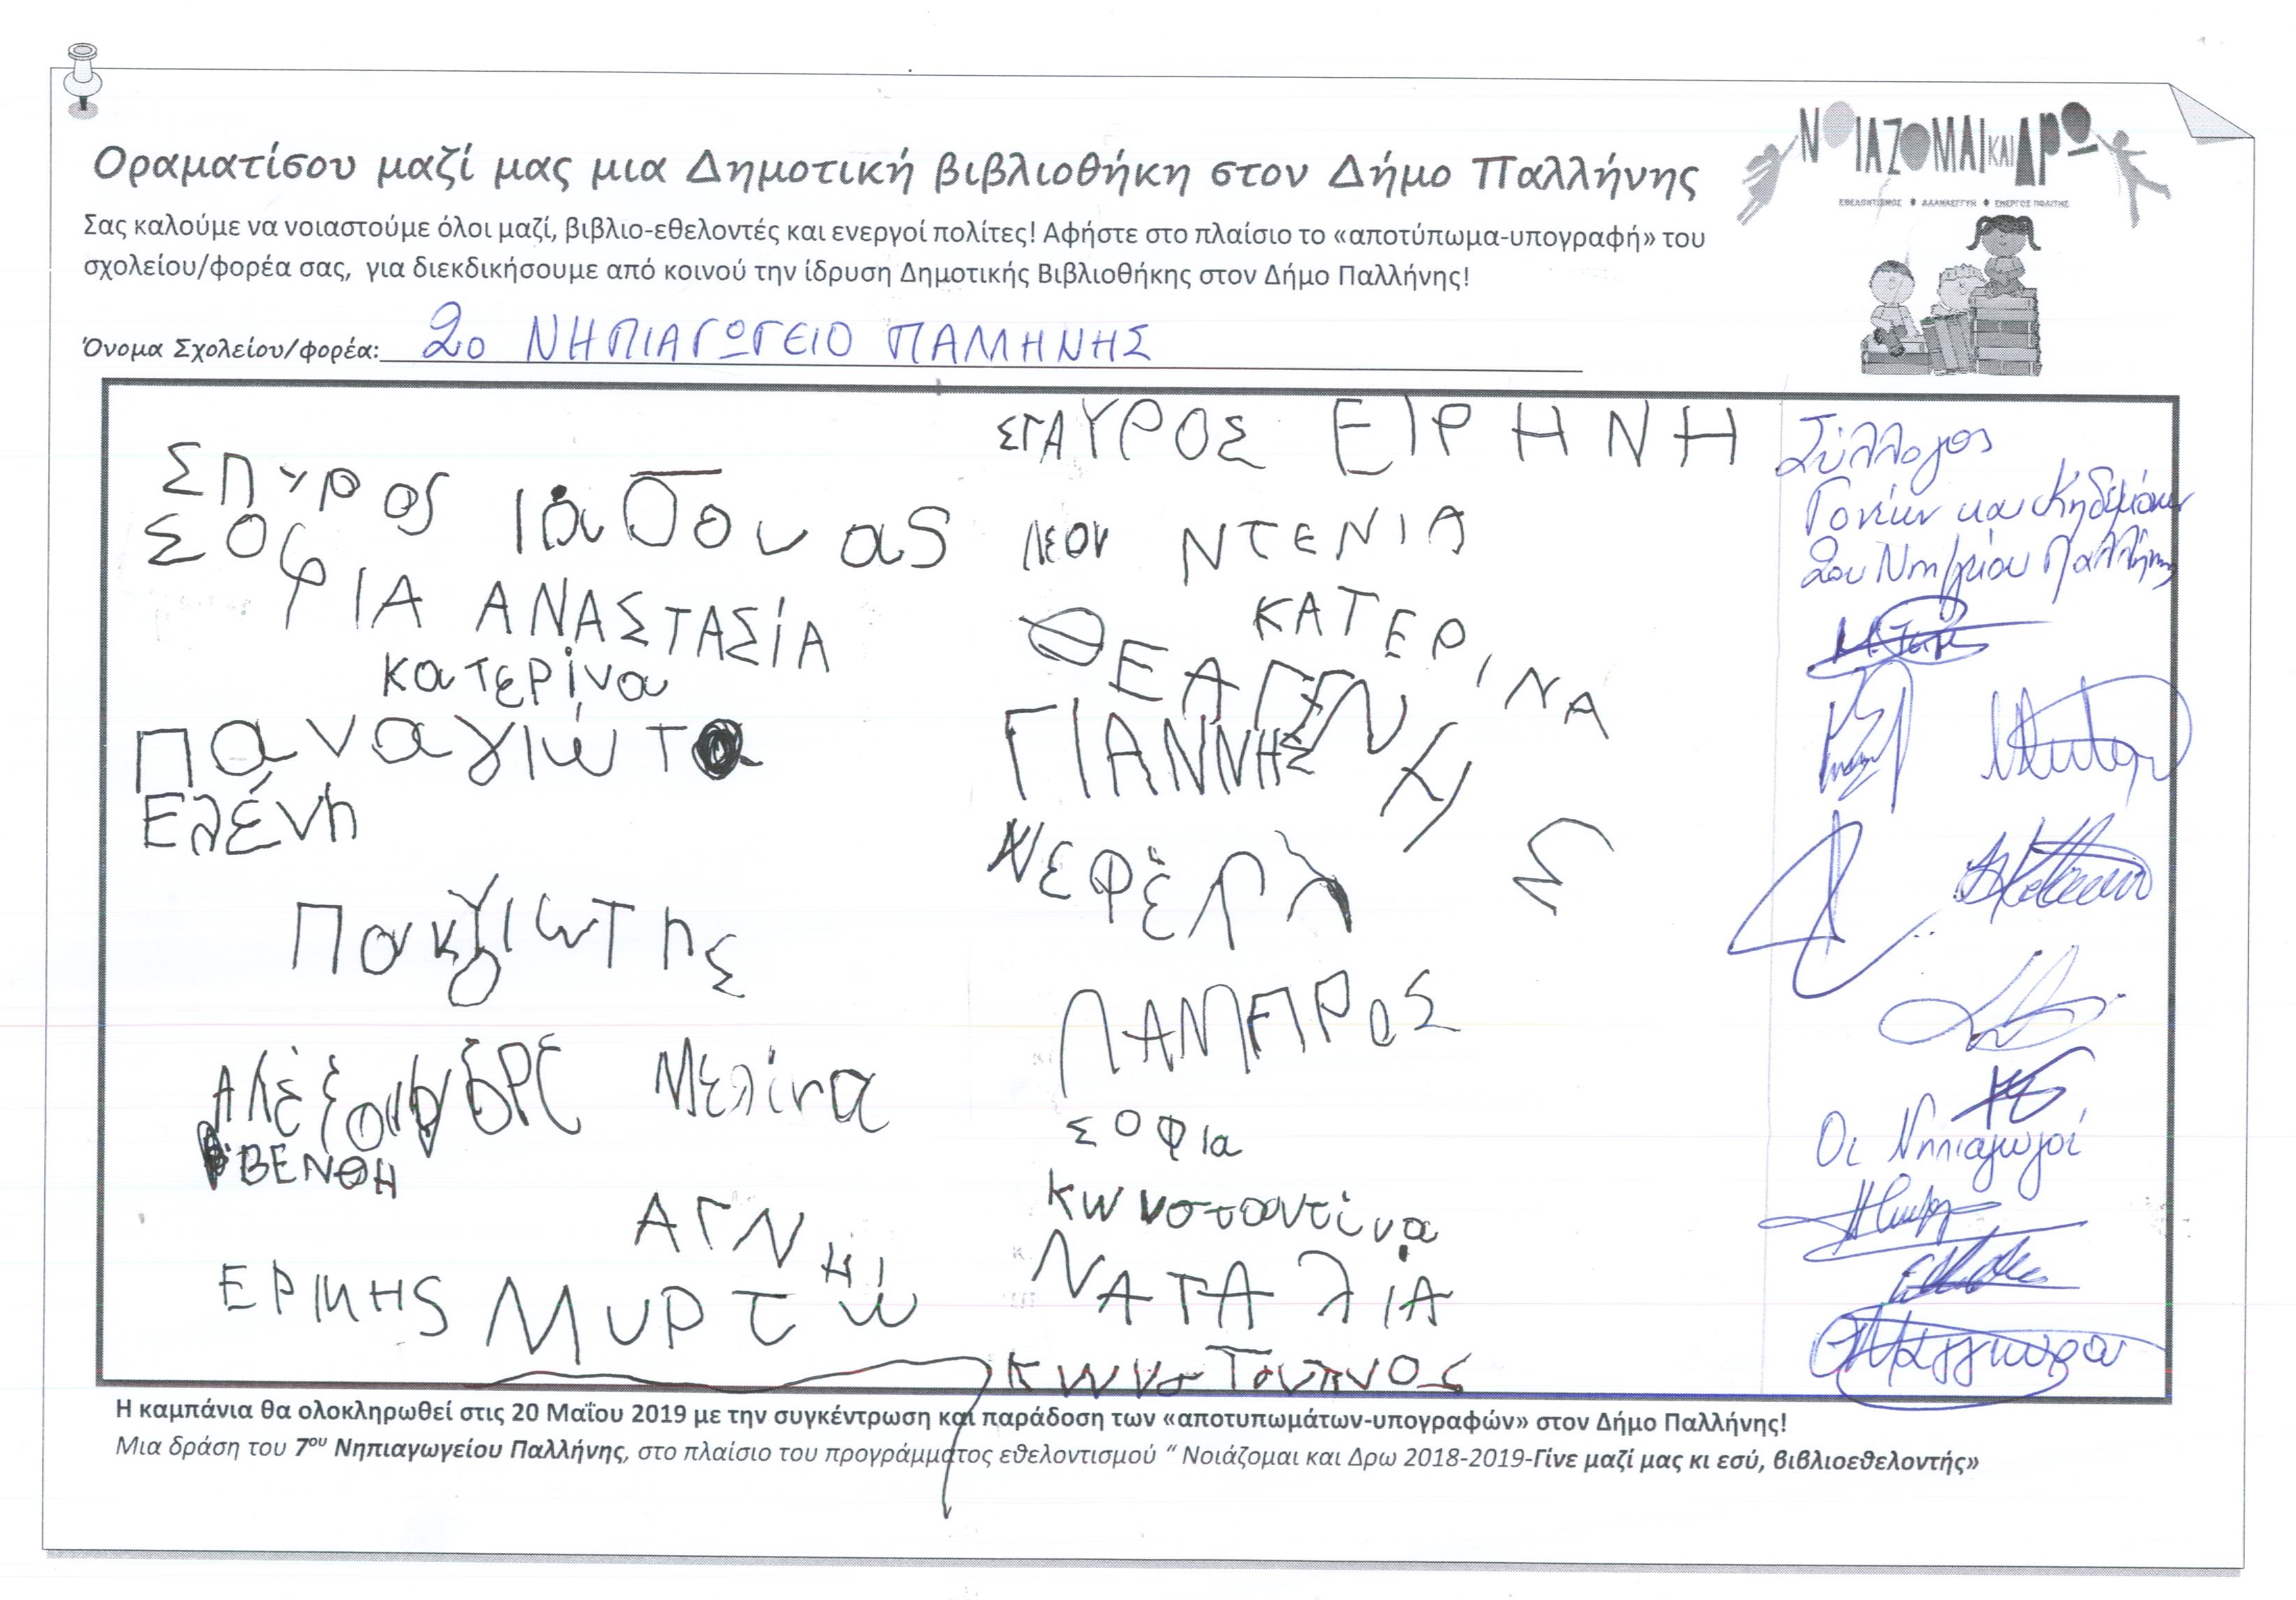 ΝΟΙΑΖΟΜΑΙ ΚΑΙ ΔΡΩ
ΕΘΕΛΟΝΤΙΣΜΟΣ ♦ ΑΛΛΗΛΕΓΓΥΗ ♦ ΕΝΕΡΓΟΣ ΠΟΛΙΤΗΣ
Οραματίσου μαζί μας μια Δημοτική βιβλιοθήκη στον Δήμο Παλλήνης
Σας καλούμε να νοιαστούμε όλοι μαζί, βιβλιο-εθελοντές και ενεργοί πολίτες! Αφήστε στο πλαίσιο το «αποτύπωμα-υπογραφή» του
σχολείου/φορέα σας, για διεκδικήσουμε από κοινού την ίδρυση Δημοτικής Βιβλιοθήκης στον Δήμο Παλλήνης!
Όνομα Σχολείου/φορέα: 2ο ΝΗΠΙΑΓΩΓΕΙΟ ΠΑΛΛΗΝΗΣ
ΣΠυρος Ιασονας
ΣΟφΙΑ ΑΝΑΣΤΑΣίΑ
κατερίνα
Παναγιώτα
Ελένη
ΒΕΝΘΗ
Μελίνα
ΑΓΝΗ
ΕΡΜΗS ΜυΡτώ
ΣΤΑΥΡΟΣ ΕΙΡΗΝΗ
ΛΕΟΝ ΝΤΕΝΙΑ
ΚΑΤΕΡΙΝΑ
ΘΕΑΓΕΝΗΣ
ΓΙΑΝΝΗΣ
ΝΕΦΈΛη
ΛΑΜΠΡΟΣ
ΣΟΦΙα
Κωνσταντίνα
ΝΑΤΑλΙΑ
Σύλλογος
Γονέων και Κηδεμόνων
2ου Νηπ/γείου Παλλήνης
Οι Νηπιαγωγοί
Η καμπάνια θα ολοκληρωθεί στις 20 Μαΐου 2019 με την συγκέντρωση και παράδοση των «αποτυπωμάτων-υπογραφών» στον Δήμο Παλλήνης!
Μια δράση του 7ου Νηπιαγωγείου Παλλήνης, στο πλαίσιο του προγράμματος εθελοντισμού “ Νοιάζομαι και Δρω 2018-2019-Γίνε μαζί μας κι εσύ, βιβλιοεθελοντής»